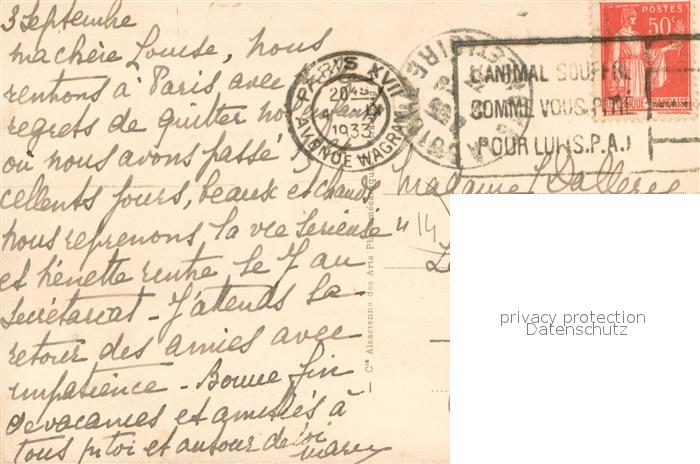 3 Septembre
ma chère Louise, nous
rentrons à Paris avec
regrets de quitter
où nous avons passé
cellents jours, beaux et chauds
nous reprenons la vie serieuse
et rentre le 7 au
Secrétariat - J'attends le
retour des amies avec
impatience - Bonne fin
de vacances et amitiés à
tous pr toi et autour de toi
PARIS XVII
20 45
1933
AVENUE WAGRAM
L'ANIMAL SOUFFRE
COMME VOUS. PITIÉ
POUR LUI (S.P.A.)
POSTES
50c
Cie Alsacienne des Arts Photomécaniques
Madame
14
privacy protection
Datenschutz